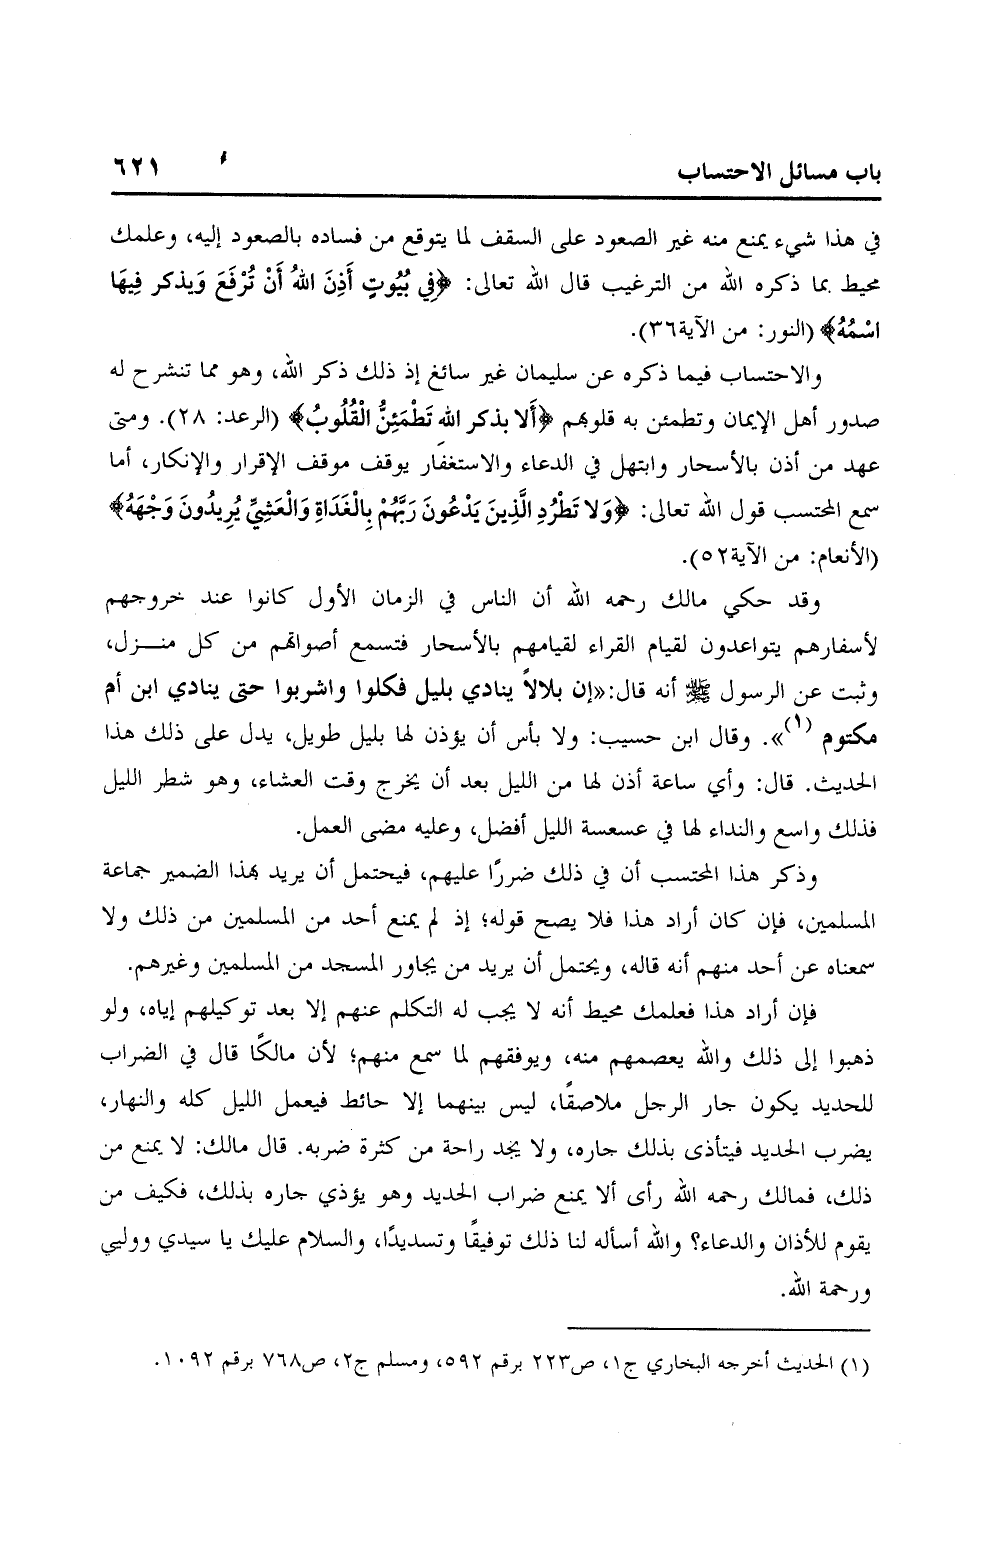 باب مسائل الاحتساب ٦٢١
في هذا شيء يمنع منه غير الصعود على السقف لما يتوقع من فساده بالصعود إليه، وعلمك
محيط بما ذكره الله من الترغيب قال الله تعالى: ﴿فِي بُيُوتٍ أَذِنَ اللهُ أَنْ تُرْفَعَ وَيذكر فِيهَا
اسْمُهُ﴾ (النور: من الآية٣٦).
والاحتساب فيما ذكره عن سليمان غير سائغ إذ ذلك ذكر الله، وهو مما تنشرح له
صدور أهل الإيمان وتطمئن به قلوبهم ﴿أَلا بذكر الله تَطْمَئِنُّ الْقُلُوبُ﴾ (الرعد: ٢٨). ومتى
عهد من أذن بالأسحار وابتهل في الدعاء والاستغفار يوقف موقف الإقرار والإنكار، أما
سمع المحتسب قول الله تعالى: ﴿وَلا تَطْرُدِ الَّذِينَ يَدْعُونَ رَبَّهُمْ بِالْغَدَاةِ وَالْعَشِيِّ يُرِيدُونَ وَجْهَهُ﴾
(الأنعام: من الآية٥٢).
وقد حكي مالك رحمه الله أن الناس في الزمان الأول كانوا عند خروجهم
لأسفارهم يتواعدون لقيام القراء لقيامهم بالأسحار فتسمع أصواتهم من كل منـــزل،
وثبت عن الرسول ﷺ أنه قال:«إن بلالاً ينادي بليل فكلوا واشربوا حتى ينادي ابن أم
مكتوم (١)». وقال ابن حسيب: ولا بأس أن يؤذن لها بليل طويل، يدل على ذلك هذا
الحديث. قال: وأي ساعة أذن لها من الليل بعد أن يخرج وقت العشاء، وهو شطر الليل
فذلك واسع والنداء لها في عسعسة الليل أفضل، وعليه مضى العمل.
وذكر هذا المحتسب أن في ذلك ضررًا عليهم، فيحتمل أن يريد بهذا الضمير جماعة
المسلمين، فإن كان أراد هذا فلا يصح قوله؛ إذ لم يمنع أحد من المسلمين من ذلك ولا
سمعناه عن أحد منهم أنه قاله، ويحتمل أن يريد من يجاور المسجد من المسلمين وغيرهم.
فإن أراد هذا فعلمك محيط أنه لا يجب له التكلم عنهم إلا بعد توكيلهم إياه، ولو
ذهبوا إلى ذلك والله يعصمهم منه، ويوفقهم لما سمع منهم؛ لأن مالكًا قال في الضراب
للحديد يكون جار الرجل ملاصقًا، ليس بينهما إلا حائط فيعمل الليل كله والنهار،
يضرب الحديد فيتأذى بذلك جاره، ولا يجد راحة من كثرة ضربه. قال مالك: لا يمنع من
ذلك، فمالك رحمه الله رأى ألا يمنع ضراب الحديد وهو يؤذي جاره بذلك، فكيف من
يقوم للأذان والدعاء؟ والله أسأله لنا ذلك توفيقًا وتسديدًا، والسلام عليك يا سيدي ووليي
ورحمة الله.
(١) الحديث أخرجه البخاري ج١، ص٢٢٣ برقم ٥٩٢، ومسلم ج٢، ص٧٦٨ برقم ١٠٩٢.